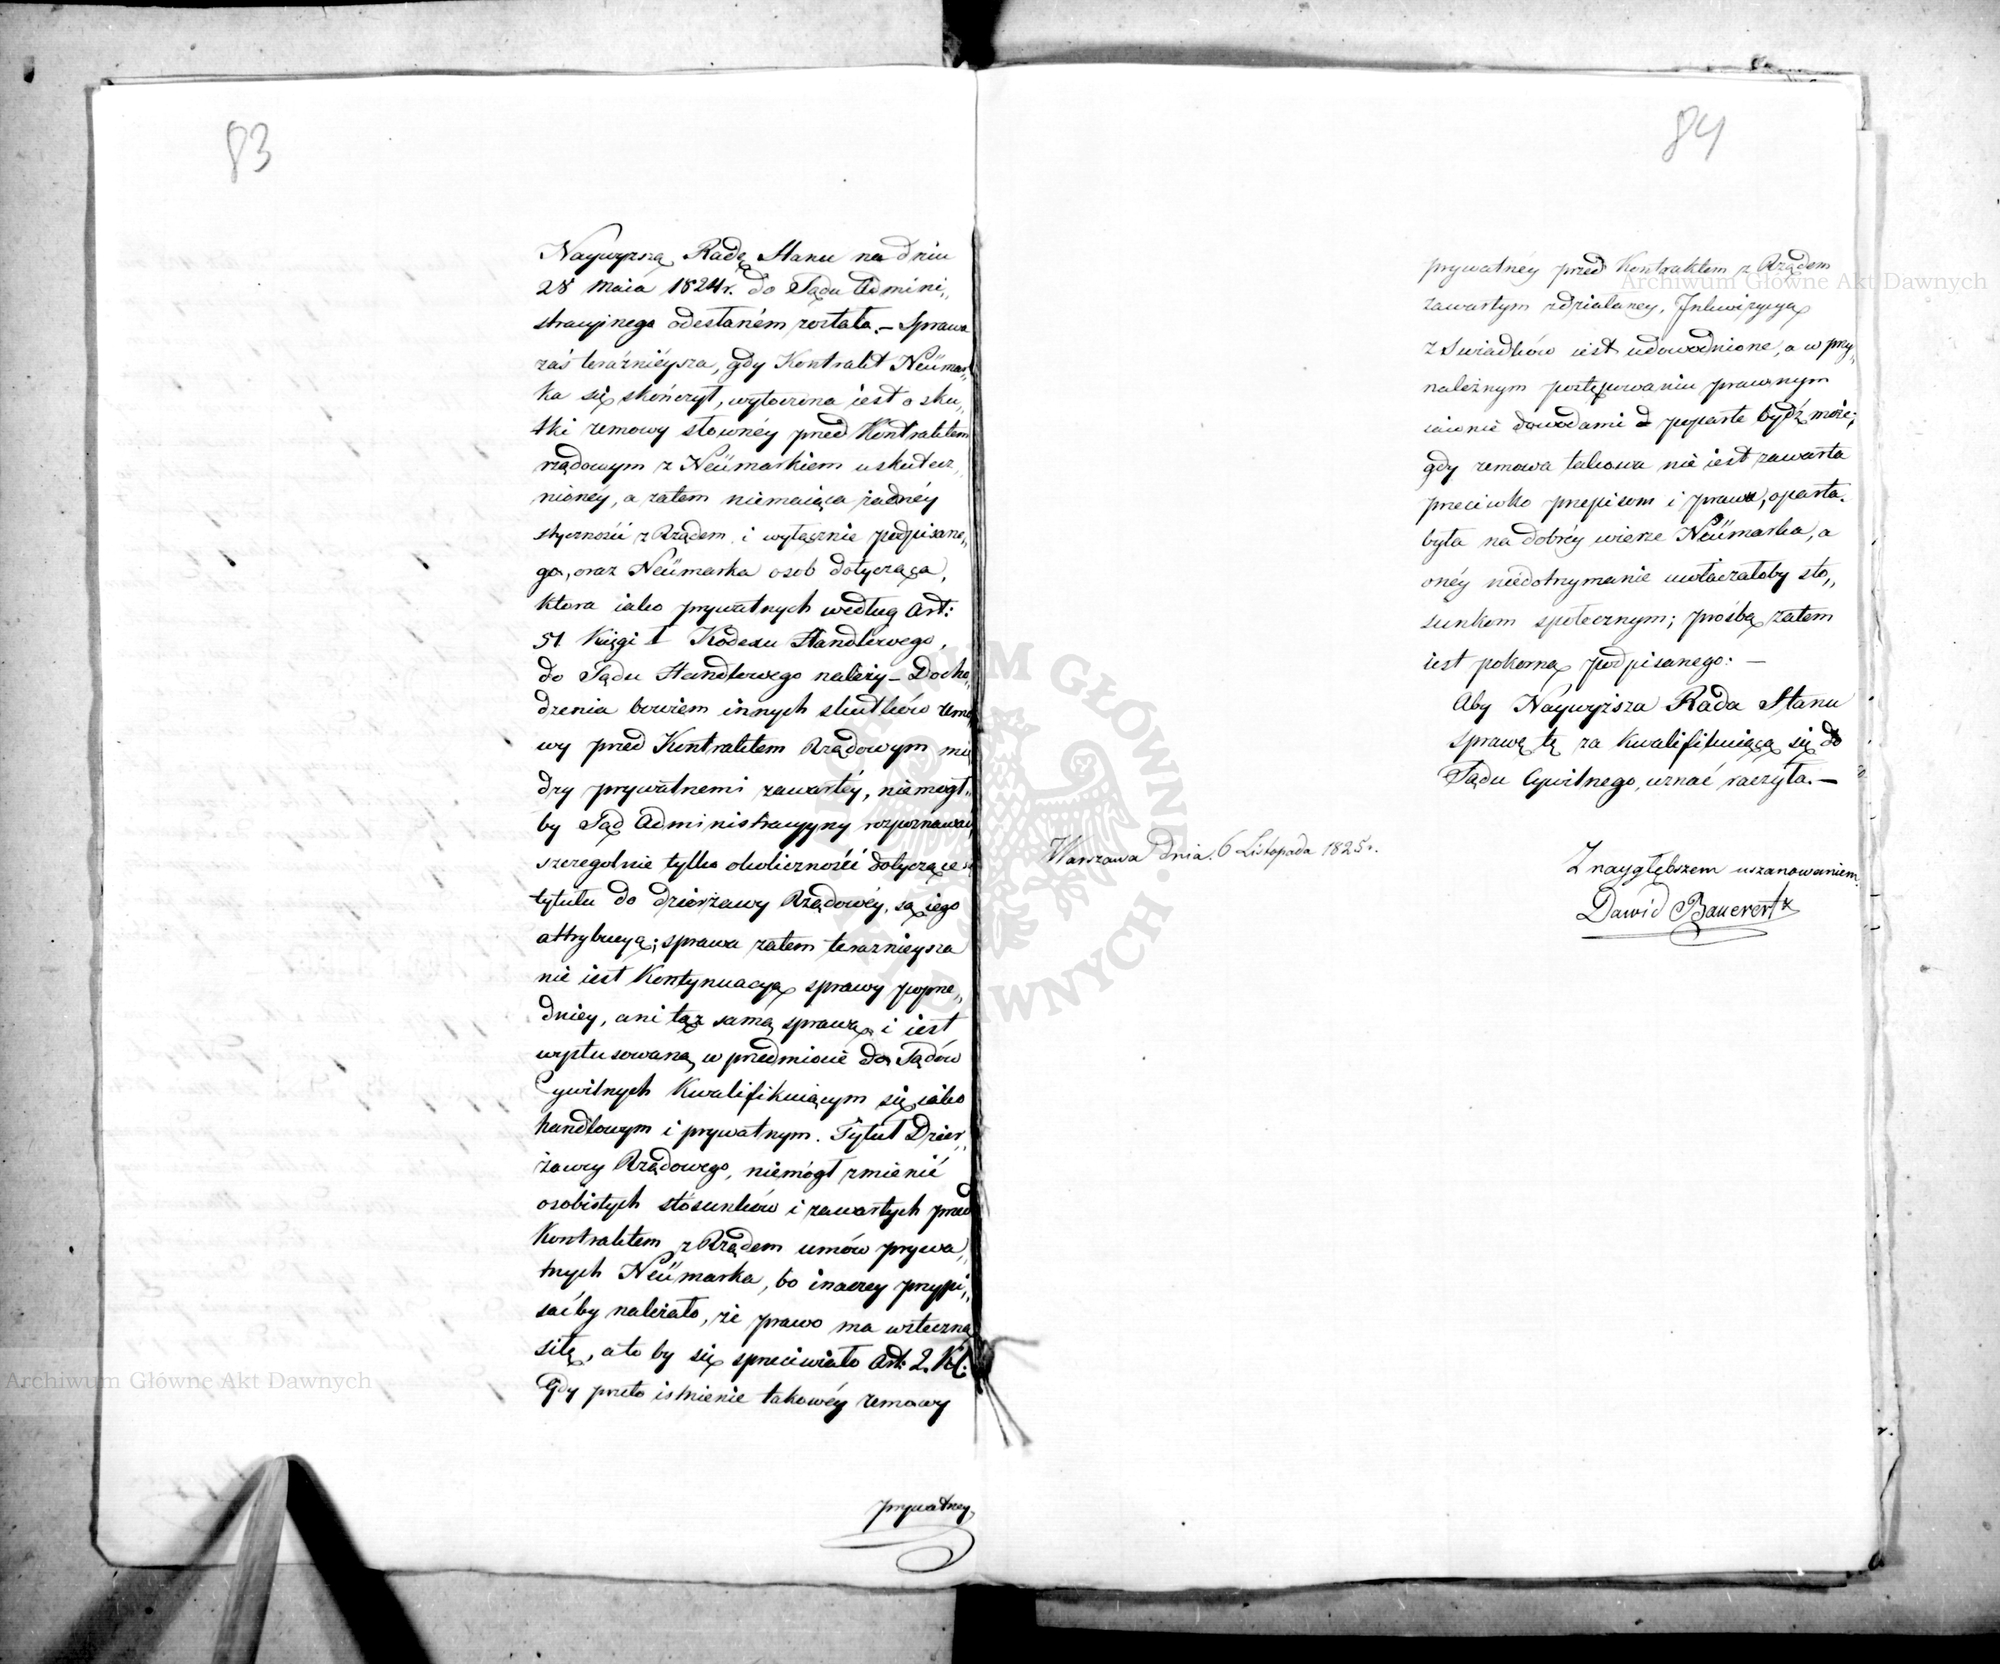 83
Naywyższą Radę Stanu na dniu
28 Maia 1824 r. do Sądu Admini„
stracyjnego odesłaném została. – Sprawa
zaś teraźnieysza, gdy Kontrakt Neümar„
ka się skończył, wytoczona iest o sku„
tki zmowy słownéy przed Kontraktem
rządowym z Neümarkiem uskutecz„
nionéy, a zatem niemaiąca żadnéy
styczności z Rządem i wyłącznie podpisane„
go, oraz Neümarka osób dotycząca,
która iako prywatnych według Art:
51 Księgi I Kodexu Handlowego,
do Sądu Handlowego należy – Docho„
dzenia bowiem innych skutków zmo„
wy przed Kontraktem Rządowym mię
dzy prywatnemi zawartéy, niemógł„
by Sąd Administracyjny rozpoznawać,
szczególnie tylko okoliczności dotyczące się
tytułu do dzierżawy Rządowéy, są iego
attrybucyą; sprawa zatem teraznieysza
nie iest Kontynuacyą sprawy poprze„
dniey, ani tąż samą sprawą i iest
wystusowaną w przedmiocie do Sądów
Cywilnych Kwalifikuiącym się iako
handlowym i prywatnym. Tytuł Dzier„
żawy Rządowego, niemógł zmienić
osobistych stósunków i zawartych przed
Kontraktem z Rządem umów prywa„
tnych Neümarka, bo inaczey przypi„
saćby należało, że prawo ma wsteczną
siłę, a to by się sprzeciwiało Art: 2. K.C.
Gdy przeto istnienie takowéy zmowy
prywatney
84
prywatnéy przed Kontraktem z Rządem
zawartym zdziałaney, Inkwizycyą
z Swiadków iest udowodnione, a w przy„
należnym postępowaniu prawnym
iawnie dowodami poparte bydź może;
gdy zmowa takowa nie iest zawarta
przeciwko przepisom i prawu, oparta
była na dobréy wierze Neümarka, a
onéy niedotrzymanie uwłaczałoby sto„
sunkom społecznym; prośbą zatem
iest pokorną podpisanego: –
Aby Naywyższa Rada Stanu
sprawę tę za kwalifikuiącą się do
Sądu Cywilnego, uznać raczyła. –
Warszawa dnia 6 Listopada 1825 r.
Z naygłębszem uszanowaniem
Dawid Bauerertz
Archiwum Główne Akt Dawnych
Archiwum Główne Akt Dawnych
ARCHIWUM GŁÓWNE AKT DAWNYCH